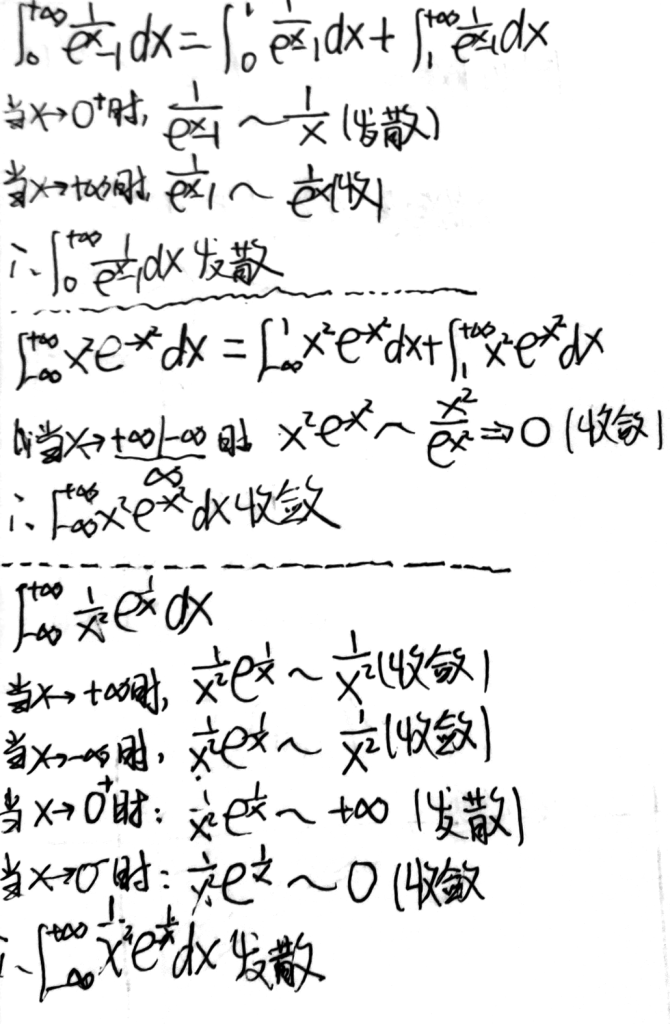 ∫₀^{+∞} 1/(eˣ-1) dx = ∫₀^1 1/(eˣ-1) dx + ∫₁^{+∞} 1/(eˣ-1) dx
当x→0⁺时, 1/(eˣ-1) ~ 1/x (发散)
当x→+∞时, 1/(eˣ-1) ~ 1/eˣ (收)
∴ ∫₀^{+∞} 1/(eˣ-1) dx 发散
∫_{-∞}^{+∞} x²e^{-x²} dx = ∫_{-∞}^1 x²e^{-x²} dx + ∫₁^{+∞} x²e^{-x²} dx
当x→+∞/-∞时 x²e^{-x²} ~ x²/e^{x²} ⇒ 0 (收敛)
∞
∴ ∫_{-∞}^{+∞} x²e^{-x²} dx 收敛
∫_{-∞}^{+∞} 1/x² e^{1/x} dx
当x→+∞时, 1/x² e^{1/x} ~ 1/x² (收敛)
当x→-∞时, 1/x² e^{1/x} ~ 1/x² (收敛)
当x→0⁺时: 1/x² e^{1/x} ~ +∞ (发散)
当x→0⁻时: 1/x² e^{1/x} ~ 0 (收敛
∴ ∫_{-∞}^{+∞} 1/x² e^{1/x} dx 发散